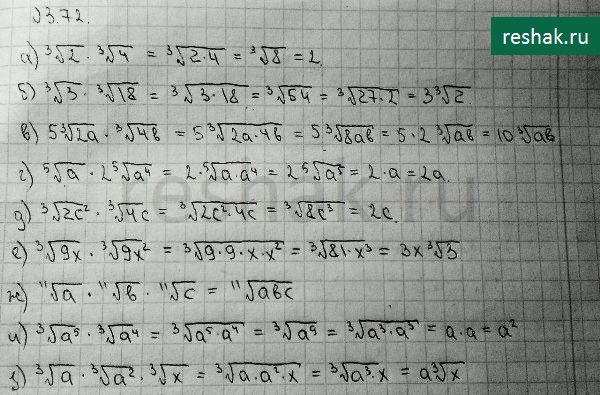 √3.72.
reshak.ru
а) ³√2 · ³√4 = ³√2·4 = ³√8 = 2.
б) ³√3 · ³√18 = ³√3·18 = ³√54 = ³√27·2 = 3³√2.
в) 5³√2a · ³√4b = 5³√2a·4b = 5³√8ab = 5·2³√ab = 10³√ab
г) ⁵√a · 2⁵√a⁴ = 2·⁵√a·a⁴ = 2⁵√a⁵ = 2·a = 2a.
д) ³√2c² · ³√4c = ³√2c²·4c = ³√8c³ = 2c.
е) ³√9x · ³√9x² = ³√9·9·x·x² = ³√81·x³ = 3x³√3
ж) ¹¹√a · ¹¹√b · ¹¹√c = ¹¹√abc
и) ³√a⁵ · ³√a⁴ = ³√a⁵·a⁴ = ³√a⁹ = ³√a³·a³ = a·a = a²
з) ³√a · ³√a² · ³√x = ³√a·a²·x = ³√a³·x = a³√x
reshak.ru